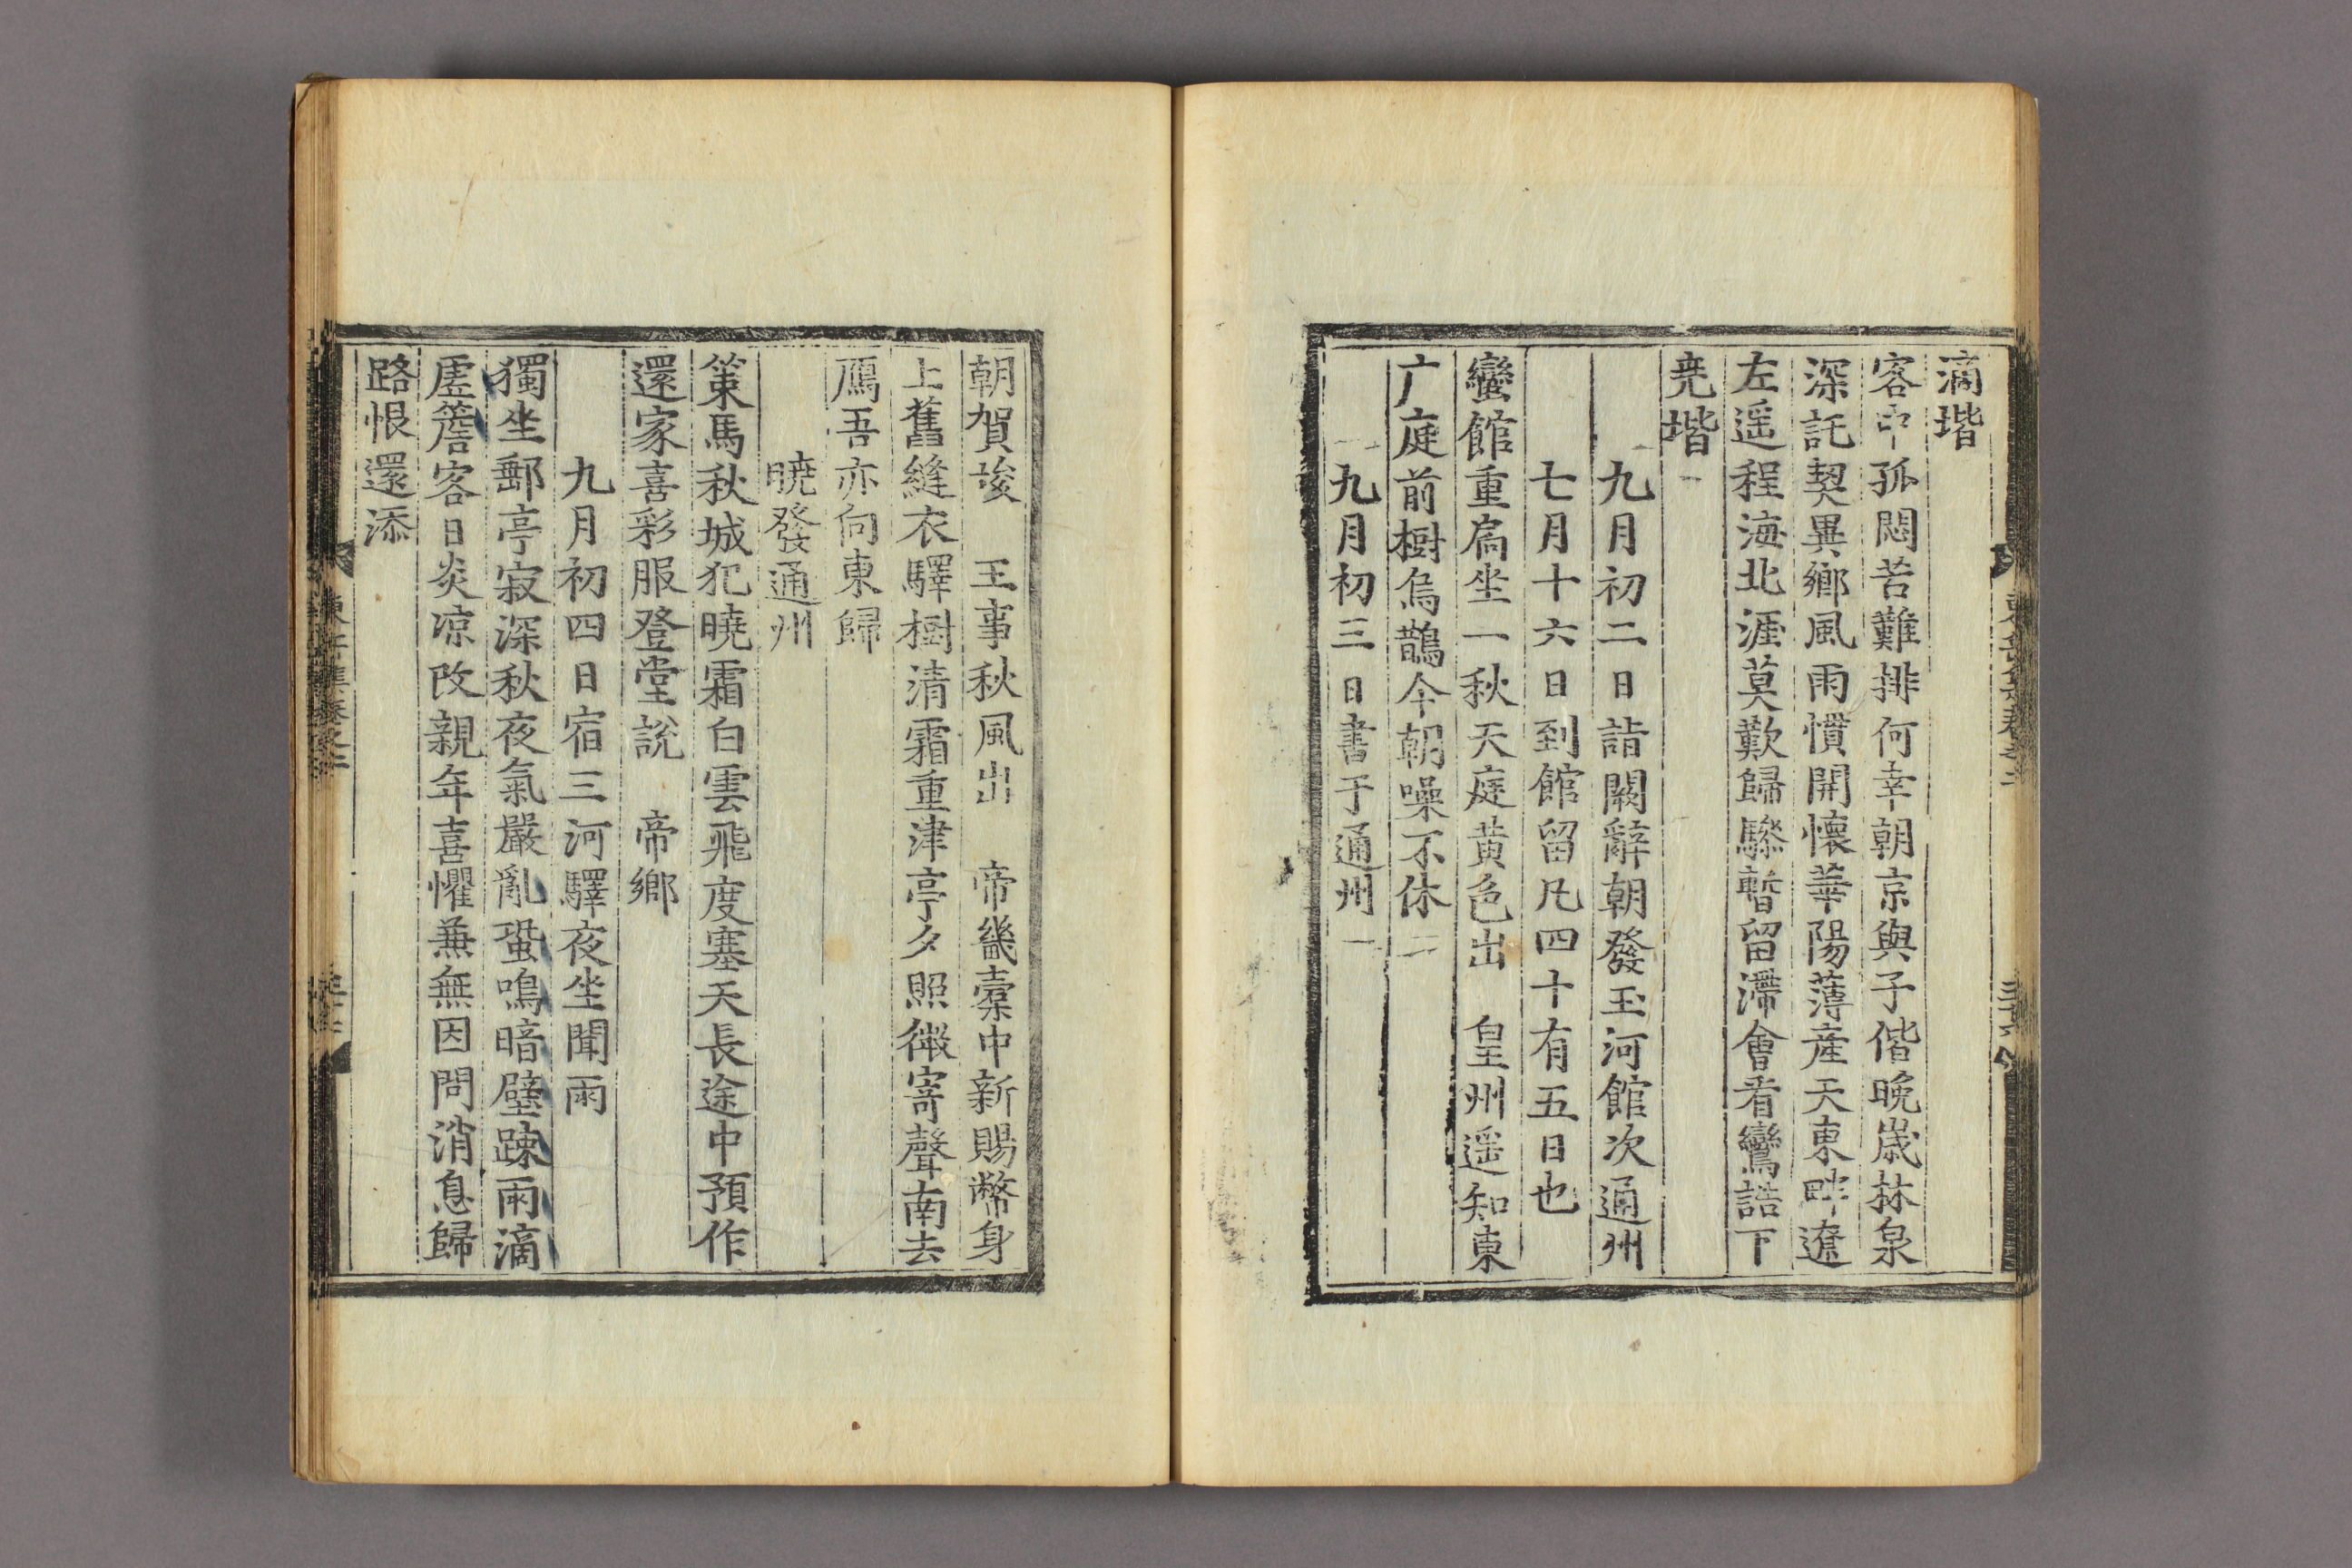 滴堦
客中孤悶苦難排何幸朝京與子偕晚歲林泉
深託契異鄕風雨慣開懷華陽薄産天東畔遼
左遥程海北涯莫歎歸驂暫留滯會看鸞誥下
尭堦
九月初二日詣闕辭朝發玉河館次通州
七月十六日到館留凡四十有五日也
蠻館重扄坐一秋天庭黄色出　皇州遥知東
广庭前樹烏鵲今朝噪不休
九月初三日書于通州
朝賀竣　王事秋風出　帝畿橐中新賜幣身
上舊縫衣驛樹清霜重津亭夕照微寄聲南去
鴈吾亦向東歸
曉發通州
策馬秋城犯曉霜白雲飛度塞天長途中預作
還家喜彩服登堂說　帝鄕
九月初四日宿三河驛夜坐聞雨
獨坐郵亭寂深秋夜氣嚴亂蛩鳴暗壁踈雨滴
虛簷客日炎凉改親年喜懼兼無因問消息歸
路恨還添